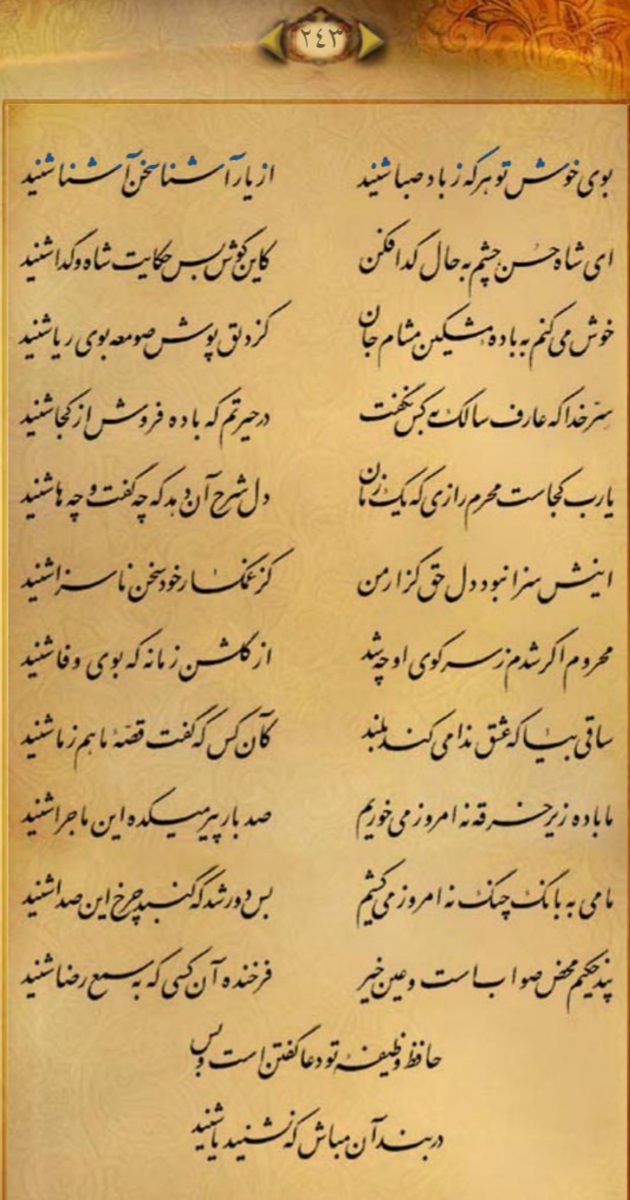 ٢٤٣
بوی خوش تو هر که ز باد صبا شنید از یار آشنا سخن آشنا شنید
ای شاه حسن چشم به حال گدا فکن کاین گوش بس حکایت شاه و گدا شنید
خوش می‌کنم به باده مشکین مشام جان کز دلق پوش صومعه بوی ریا شنید
سرّ خدا که عارف سالک به کس نگفت در حیرتم که باده فروش از کجا شنید
یا رب کجاست محرم رازی که یک زمان دل شرح آن دهد که چه گفت و چه‌ها شنید
اینش سزا نبود دل حق گزار من کز غمگسار خود سخن ناسزا شنید
محروم اگر شدم ز سر کوی او چه شد از گلشن زمانه که بوی وفا شنید
ساقی بیا که عشق ندا می‌کند بلند کآن کس که گفت قصّهٔ ما هم ز ما شنید
ما باده زیر خرقه نه امروز می‌خوریم صد بار پیر میکده این ماجرا شنید
ما می به بانگ چنگ نه امروز می‌کشیم بس دور شد که گنبد چرخ این صدا شنید
پند حکیم محض صواب است و عین خیر فرخنده آن کسی که به سمع رضا شنید
حافظ وظیفهٔ تو دعا گفتن است و بس
در بند آن مباش که نشنید یا شنید